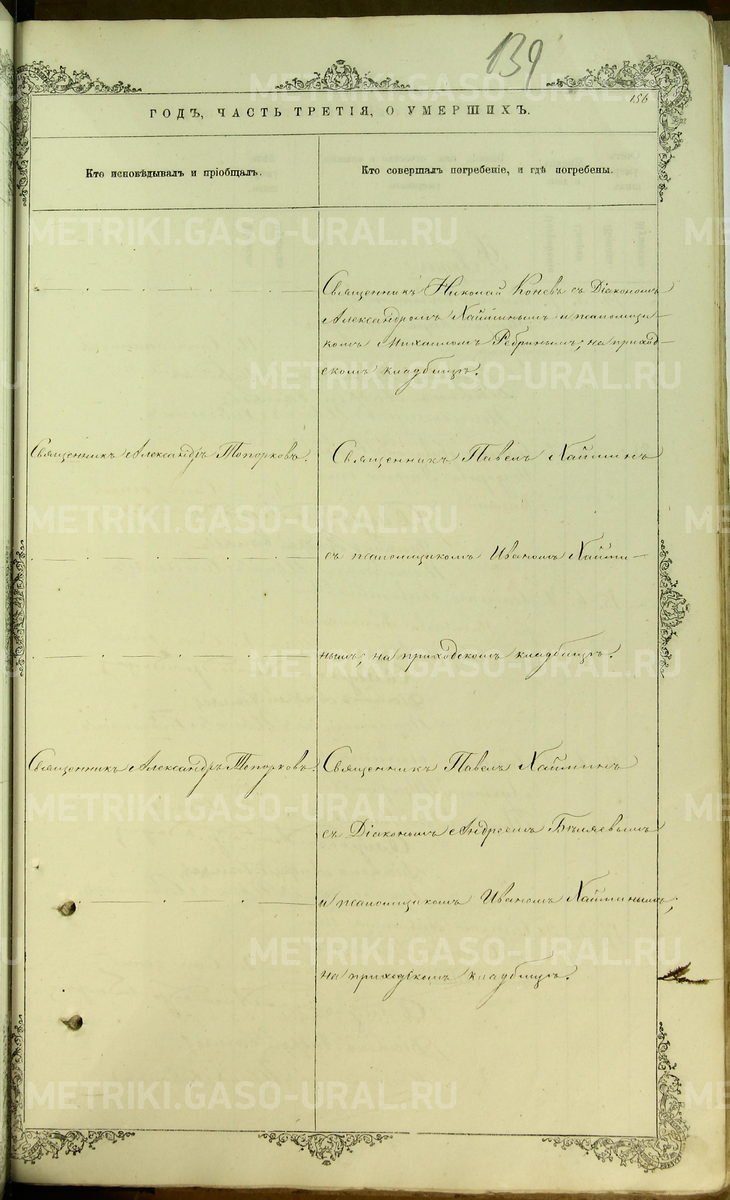 139
156
ГОДЪ, ЧАСТЬ ТРЕТІЯ, О УМЕРШИХЪ.
Кто исповѣдывалъ и пріобщалъ.
Кто совершалъ погребеніе, и гдѣ погребены.
Священникъ Николай Коневъ съ Діакономъ
Александромъ Хаймінымъ и псаломщи-
комъ Михаиломъ Ребринымъ; на приход-
скомъ кладбищѣ.
Священникъ Александръ Топорковъ.
Священникъ Павелъ Хайминъ
съ псаломщикомъ Иваномъ Хайми-
нымъ; на приходскомъ кладбищѣ.
Священникъ Александръ Топорковъ.
Священникъ Павелъ Хайминъ
съ Діакономъ Андреемъ Бѣляевымъ
и псаломщикомъ Иваномъ Хайминымъ;
на приходскомъ кладбищѣ.
METRIKI.GASO-URAL.RU